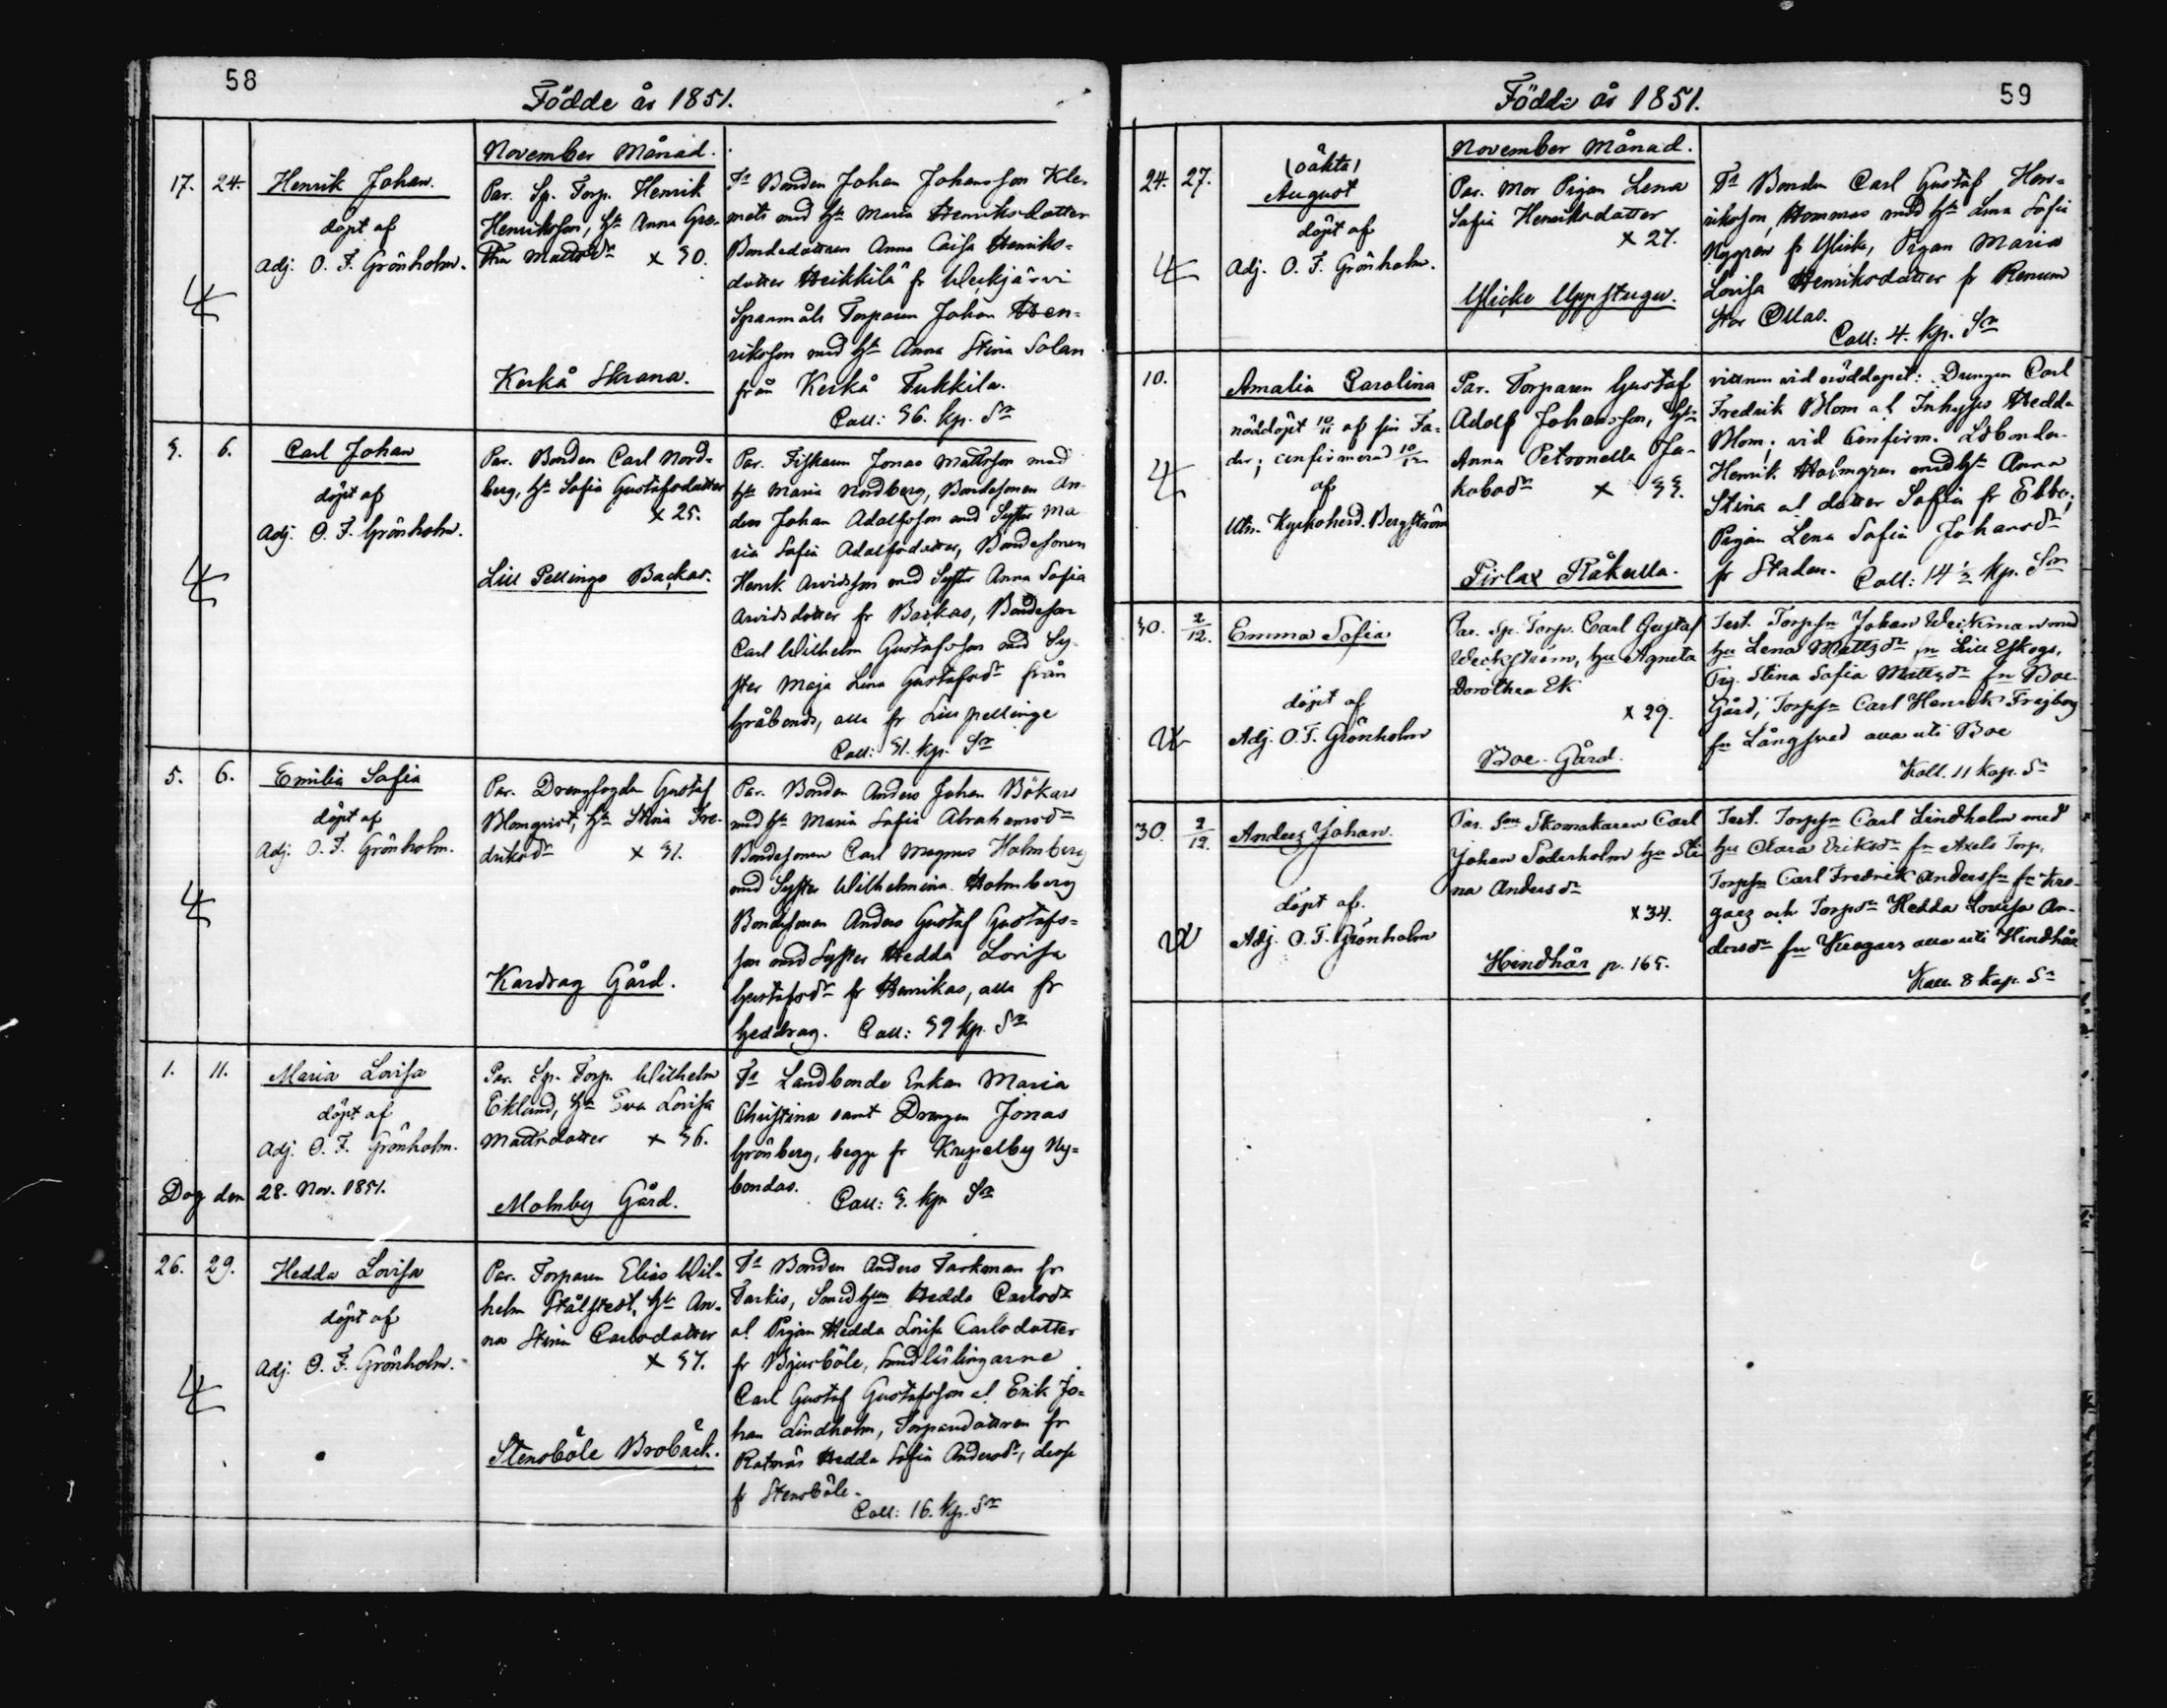 58
Födde år 1851.
November Månad.
17. 24. Henrik Johan.
döpt af
Adj. O. F. Grönholm.
Par. Sp. Torp. Henrik
Henriksson, hn Anna Gre-
tha Mattsdr x 30.
Kerkå Skrana.
Tn Bonden Johan Johansson Kle-
mets med hn Maria Henriksdatter
Bondedottren Anna Caisa Henriks-
datter Heikkilä fr Weckjärvi
Spannmåls Torparen Johan Hen-
riksson med hn Anna Stina Solan
från Kerkå Tukkila.
Coll: 36. kp. Sr
3. 6. Carl Johan
döpt af
Adj. O. F. Grönholm.
Par. Bonden Carl Nord-
berg, hn Sofia Gustafsdatter
x 25.
Lill Pellinge Backas.
Par. Fiskaren Jonas Mattsson med
hn Maria Nordberg, Bondesonen An-
ders Johan Adolfsson med Syster Ma
ria Sofia Adolfsdatter, Bondesonen
Henrik Arvidsson med Syster Anna Sofia
Arvidsdotter fr Backas, Bondeson
Carl Wilhelm Gustafsson med Sy-
ster Maja Lena Gustafsdr från
Gråbonds, alla fr Lillpellinge
Coll: 31. kp. Sr
5. 6. Emilia Sofia
döpt af
Adj. O. F. Grönholm.
Par. Drengfogden Gustaf
Blomqvist, hn Stina Fre-
driksdr x 31.
Kardrag Gård.
Par. Bonden Anders Johan Bökars
med hn Maria Sofia Abrahamsdr
Bondesonen Carl Magnus Holmberg
med Syster Wilhelmina Holmberg
Bondesonen Anders Gustaf Gustafs-
son med Syster Hedda Lovisa
Gustafsdr fr Henrikas, alla fr
Geddrag. Coll: 39 kp. Sr
1. 11. Maria Lovisa
döpt af
Adj. O. F. Grönholm.
Dog den 28. Nov. 1851.
Par. Sp. Torp. Wilhelm
Eklund, hn Eva Lovisa
Mattsdatter x 36.
Molnby Gård.
Tn Landbonde Enkan Maria
Christina samt Drengen Jonas
Grönberg, begge fr Krepelby Ny-
bondas.
Coll: 3. kp. Sr
26. 29. Hedda Lovisa
döpt af
Adj. O. F. Grönholm.
Par. Torparen Elias Wil-
helm Stålstedt, hn An-
na Stina Carlsdatter
x 37.
Stensböle Brobäck.
Tn Bonden Anders Tarkman fr
Tarkis, Smedhun Hedda Carlsdr
al Pigan Hedda Lovisa Carlsdatter
fr Bjurböle, Smedlärlingarne
Carl Gustaf Gustafsson al Erik Jo-
han Lindholm, Torparedottren fr
Ratnäs Hedda Sofia Andersdr, desse
fr Stensböle.
Coll: 16. kp. Sr
59
Födde år 1851.
November Månad.
24. 27. (oäkta)
August
döpt af
Adj. O. F. Grönholm.
Par. Mor Pigan Lena
Sofia Henriksdatter
x 27.
Ylicke Uppstugu.
Tn Bonden Carl Gustaf Hen-
riksson, Hommas med hn Lena Sofia
Nygren fr Ylicke, Pigan Maria
Lovisa Henriksdatter fr Renum
Stor Ollas.
Coll: 4. kp. Sr
10. Amalia Carolina
nöddöpt 10/11 af sin Fa-
der; confirmerad 10/12
af
Utn. Kyrkoherd. Bergström
Par. Torparen Gustaf
Adolf Johansson, hn
Anna Petronella Ja-
kobsdr x 33.
Pirlax Råkulla.
vittnen vid nöddopet: Drengen Carl
Fredrik Blom al Inhyses Hedda
Blom; vid Confirm. Ldbonden
Henrik Holmgren med hn Anna
Stina al dotter Sofia fr Ebbo;
Pigan Lena Sofia Johansdr
fr Staden. Coll: 14 1/2 kp. Smr
30. 2/12. Emma Sofia
döpt af
Adj. O. F. Grönholm
Par. Sp. Torp. Carl Gustaf
Weckström, hu Agneta
Dorothea Ek
x 29.
Boe Gård.
Test. Torpn Johan Weckman med
hu Lena Mattsdr fn Lill Eskogs,
Pig. Stina Sofia Mattsdr fn Boe
Gård, Torpn Carl Henrik Frejborg
fn Långsved alla uti Boe
Koll. 11 kop. Sr
30. 2/12. Anders Johan.
döpt af.
Adj. O. F. Grönholm
Par. Sn Skomakaren Carl
Johan Söderholm hu Sti
na Andersdr
x 34.
Hindhår p. 165.
Test. Torpn Carl Lindholm med
hu Clara Eriksdr fn Axels Torp,
Torpn Carl Fredrik Anderssn fn Kro-
gars och Torpdr Hedda Lovisa An-
dersdr fn Krogars alla uti Hindhår
Koll. 8 kop. Sr